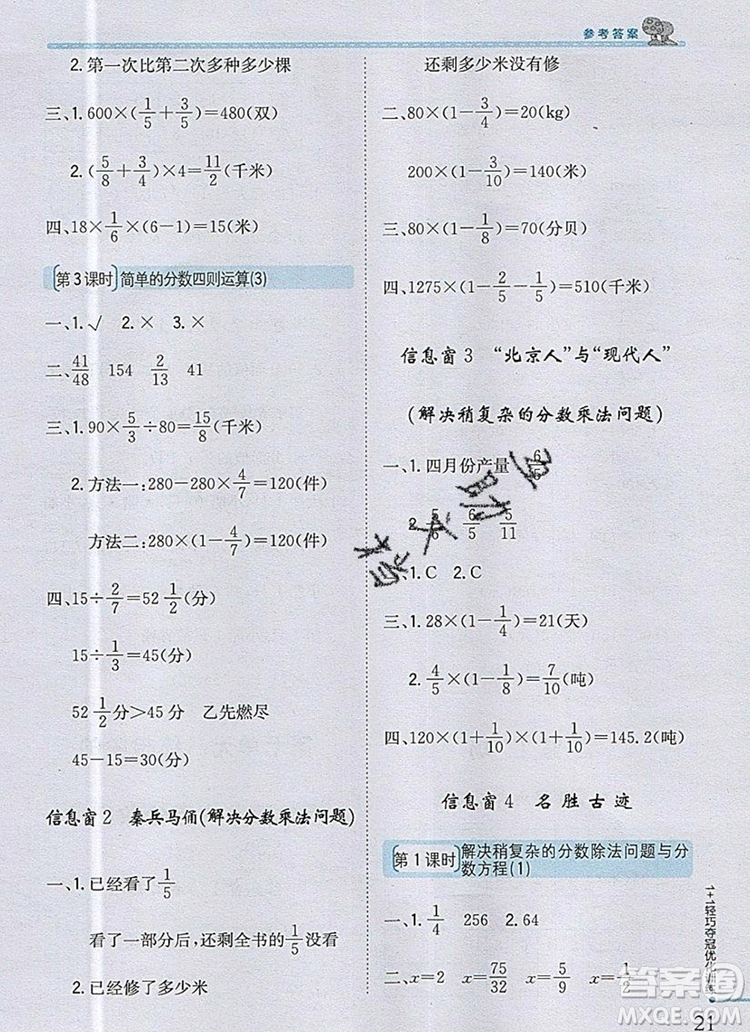 参考答案
2. 第一次比第二次多种多少棵
三、1. 600×(1/5+3/5)=480(双)
2. (5/8+3/4)×4=11/2(千米)
四、18×1/6×(6-1)=15(米)
第3课时 简单的分数四则运算(3)
一、1. √ 2. × 3. ×
二、41/48 154 2/13 41
三、1. 90×5/3÷80=15/8(千米)
2. 方法一:280-280×4/7=120(件)
方法二:280×(1-4/7)=120(件)
四、15÷2/7=52 1/2(分)
15÷1/3=45(分)
52 1/2分>45分 乙先燃尽
45-15=30(分)
信息窗2 秦兵马俑(解决分数乘法问题)
一、1. 已经看了1/5
看了一部分后,还剩全书的1/5没有看
2. 已经修了多少米
还剩多少米没有修
二、80×(1-3/4)=20(kg)
200×(1-3/10)=140(米)
三、80×(1-1/8)=70(分贝)
四、1275×(1-2/5-1/5)=510(千米)
信息窗3 “北京人”与“现代人”
(解决稍复杂的分数乘法问题)
一、1. 四月份产量 6/5
2. 5/6 6/5 5/11
1. C 2. C
三、1. 28×(1-1/4)=21(天)
2. 4/5×(1-1/8)=7/10(吨)
四、120×(1+1/10)×(1+1/10)=145.2(吨)
信息窗4 名胜古迹
第1课时 解决稍复杂的分数除法问题与分
数方程(1)
一、1. 1/4 256 2. 64
二、x=2 x=75/32 x=5/9 x=1/2
1+1轻巧夺冠优化训练
21
答案圈
MXQE.COM